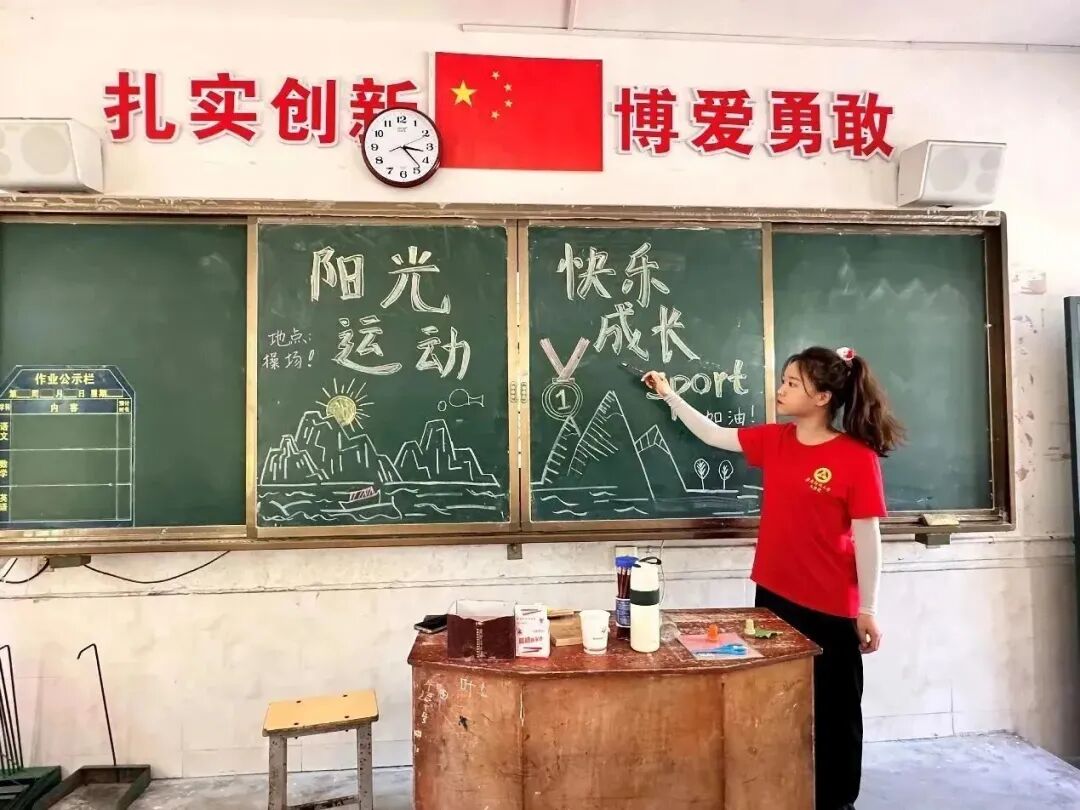 扎实创新
博爱勇敢
阳光
运动
地点:
操场!
快乐
成长
sport
加油!
1
作业公示栏
第 周 月 日 星期
学科 内容
语文
数学
英语